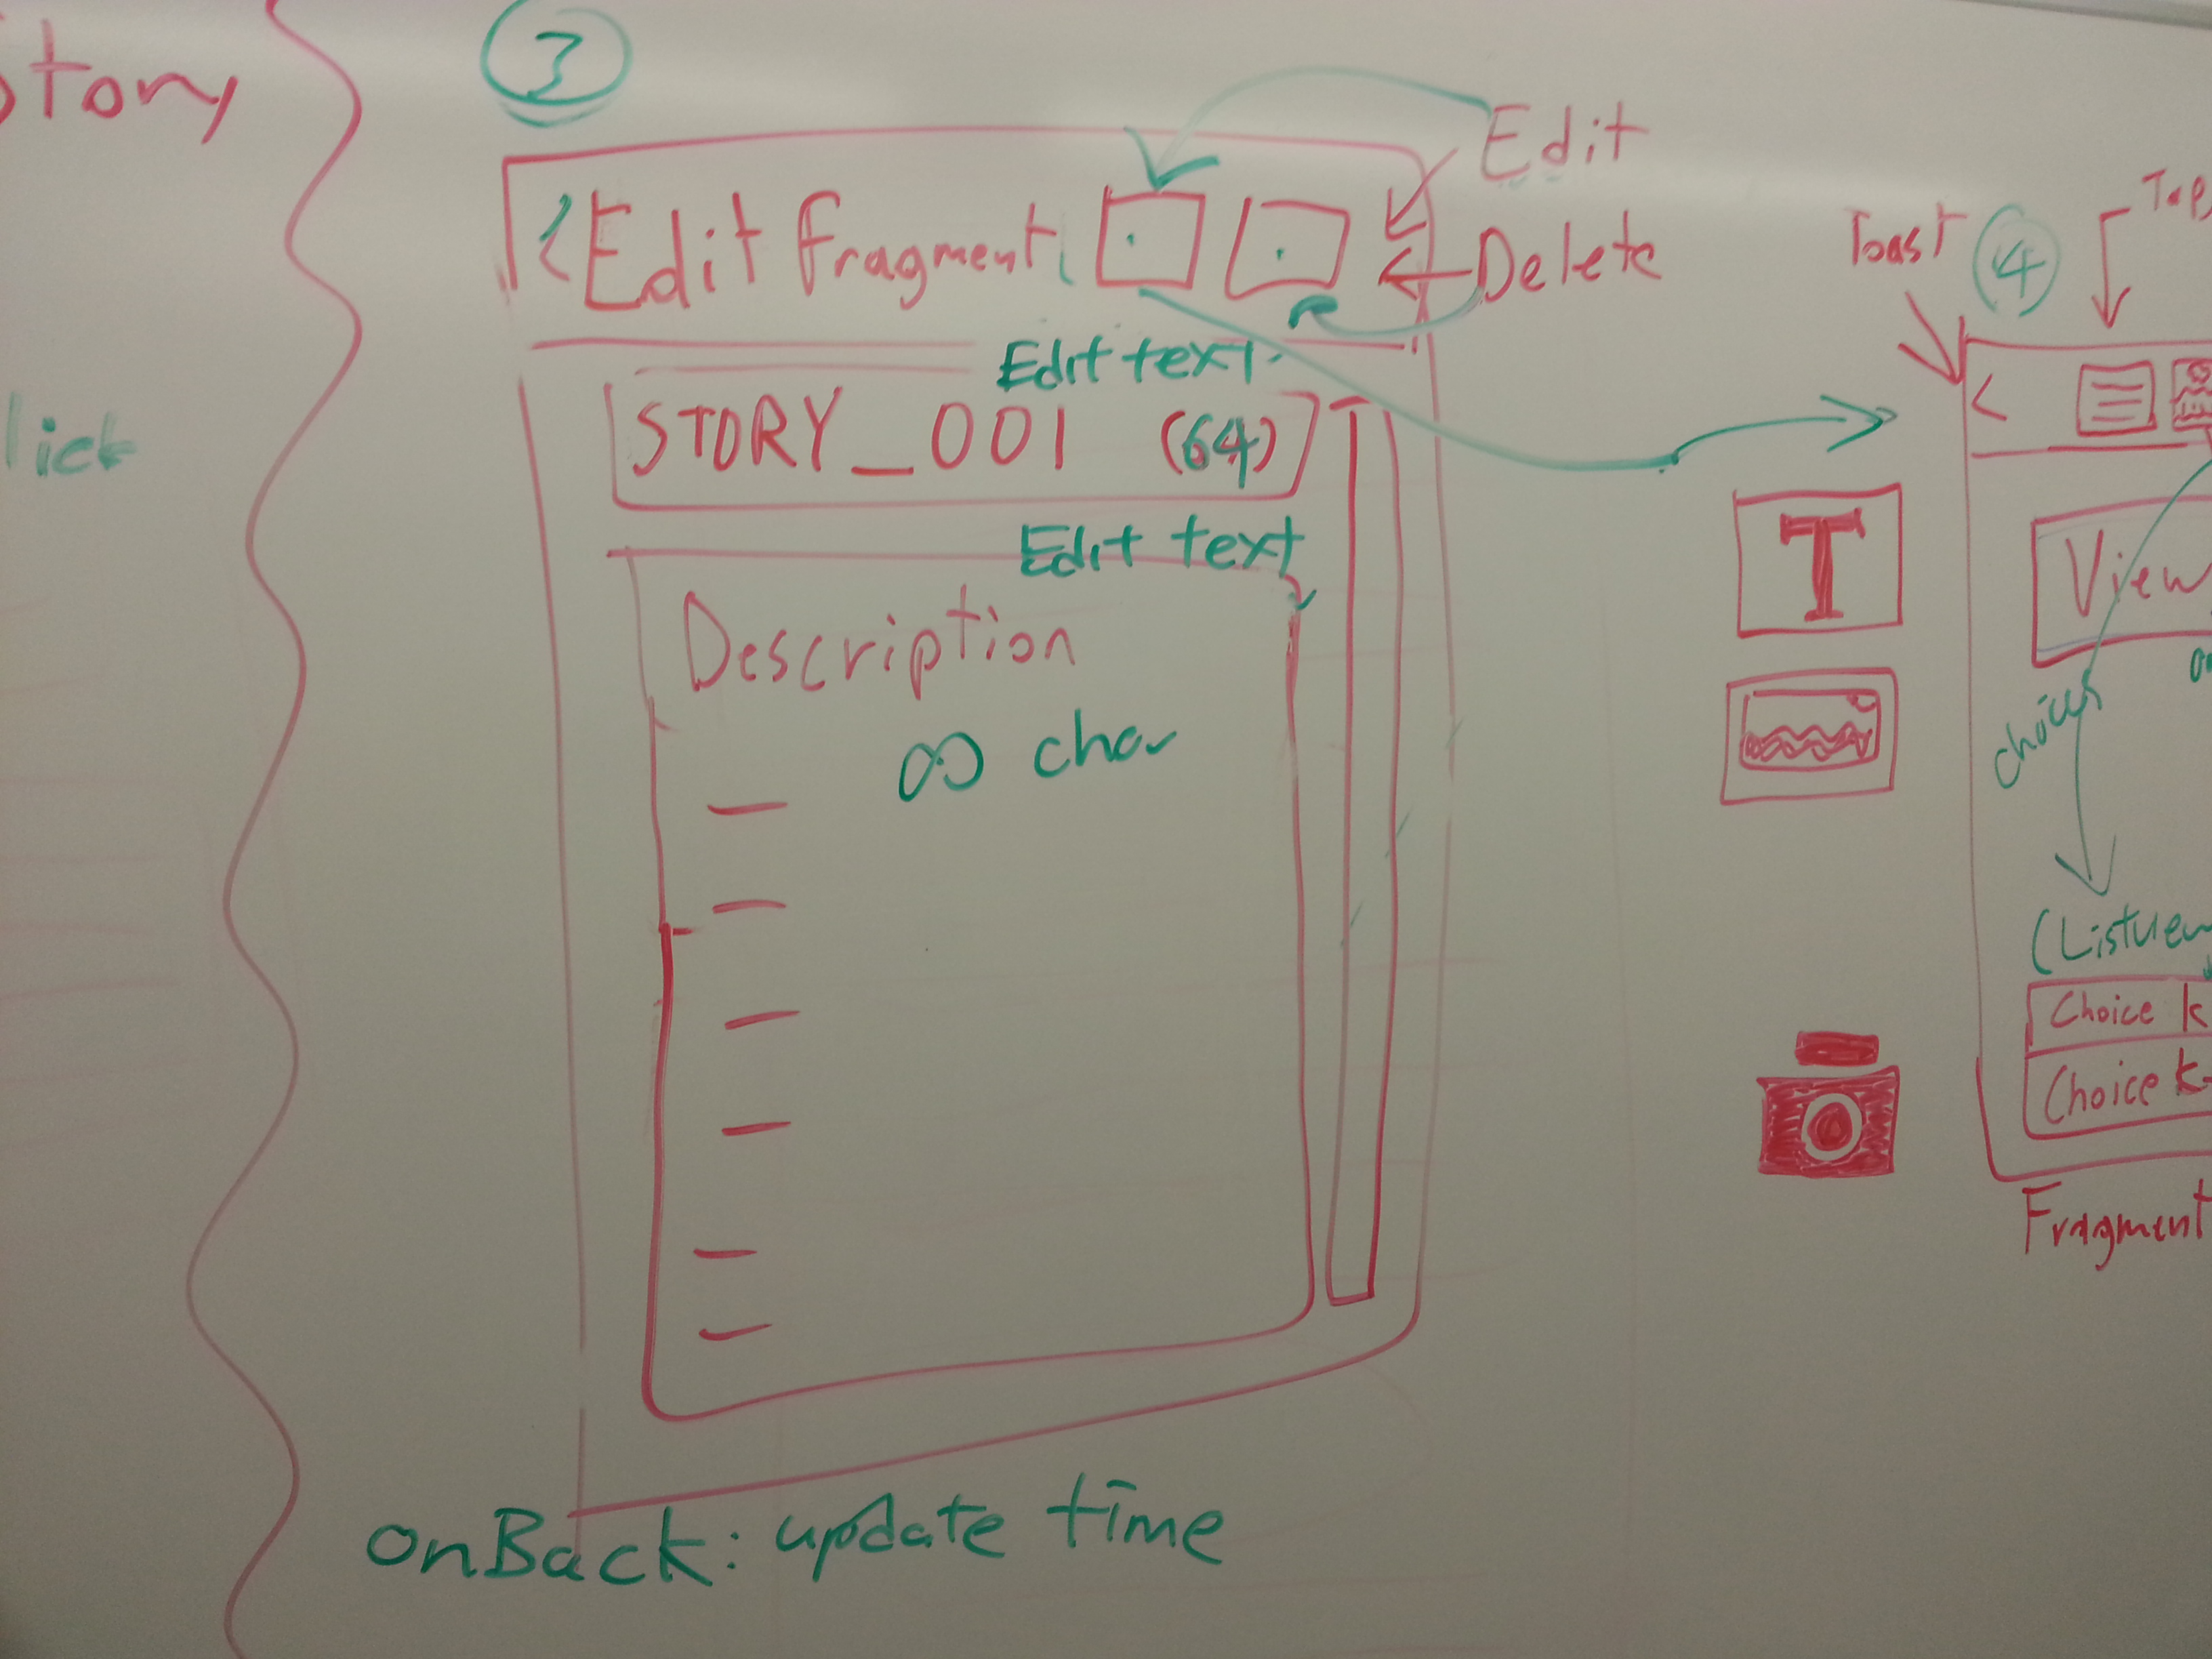 story
lick
3
Edit
Edit fragment
Delete
Edit text
STORY_001 (64)
Edit text
Description
∞ char
onBack: update time
T
Toast
4
Tap
View
choices
(Listview
Choice k
Choice k
Fragment